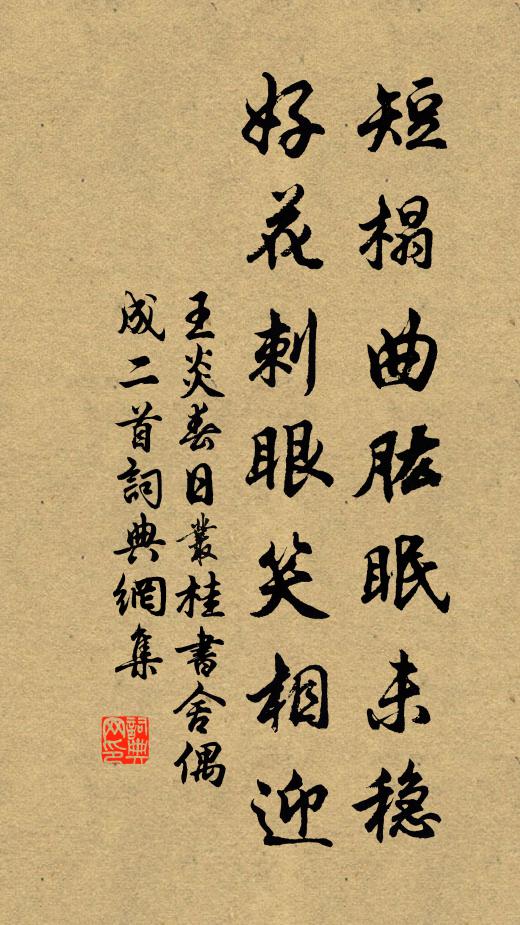 短榻曲肱眠未稳
好花刺眼笑相迎
王炎春日叢桂書舍偶
成二首詞典網集
詞典
网印